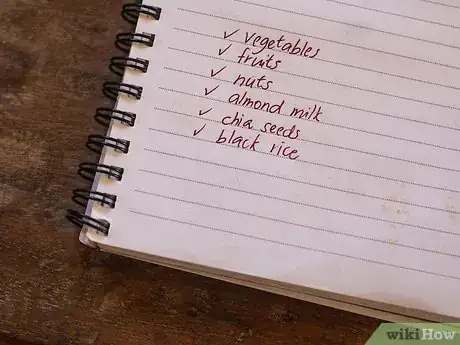 ✓ vegetables
✓ fruits
✓ nuts
✓ almond milk
✓ chia seeds
✓ black rice
wikiHow